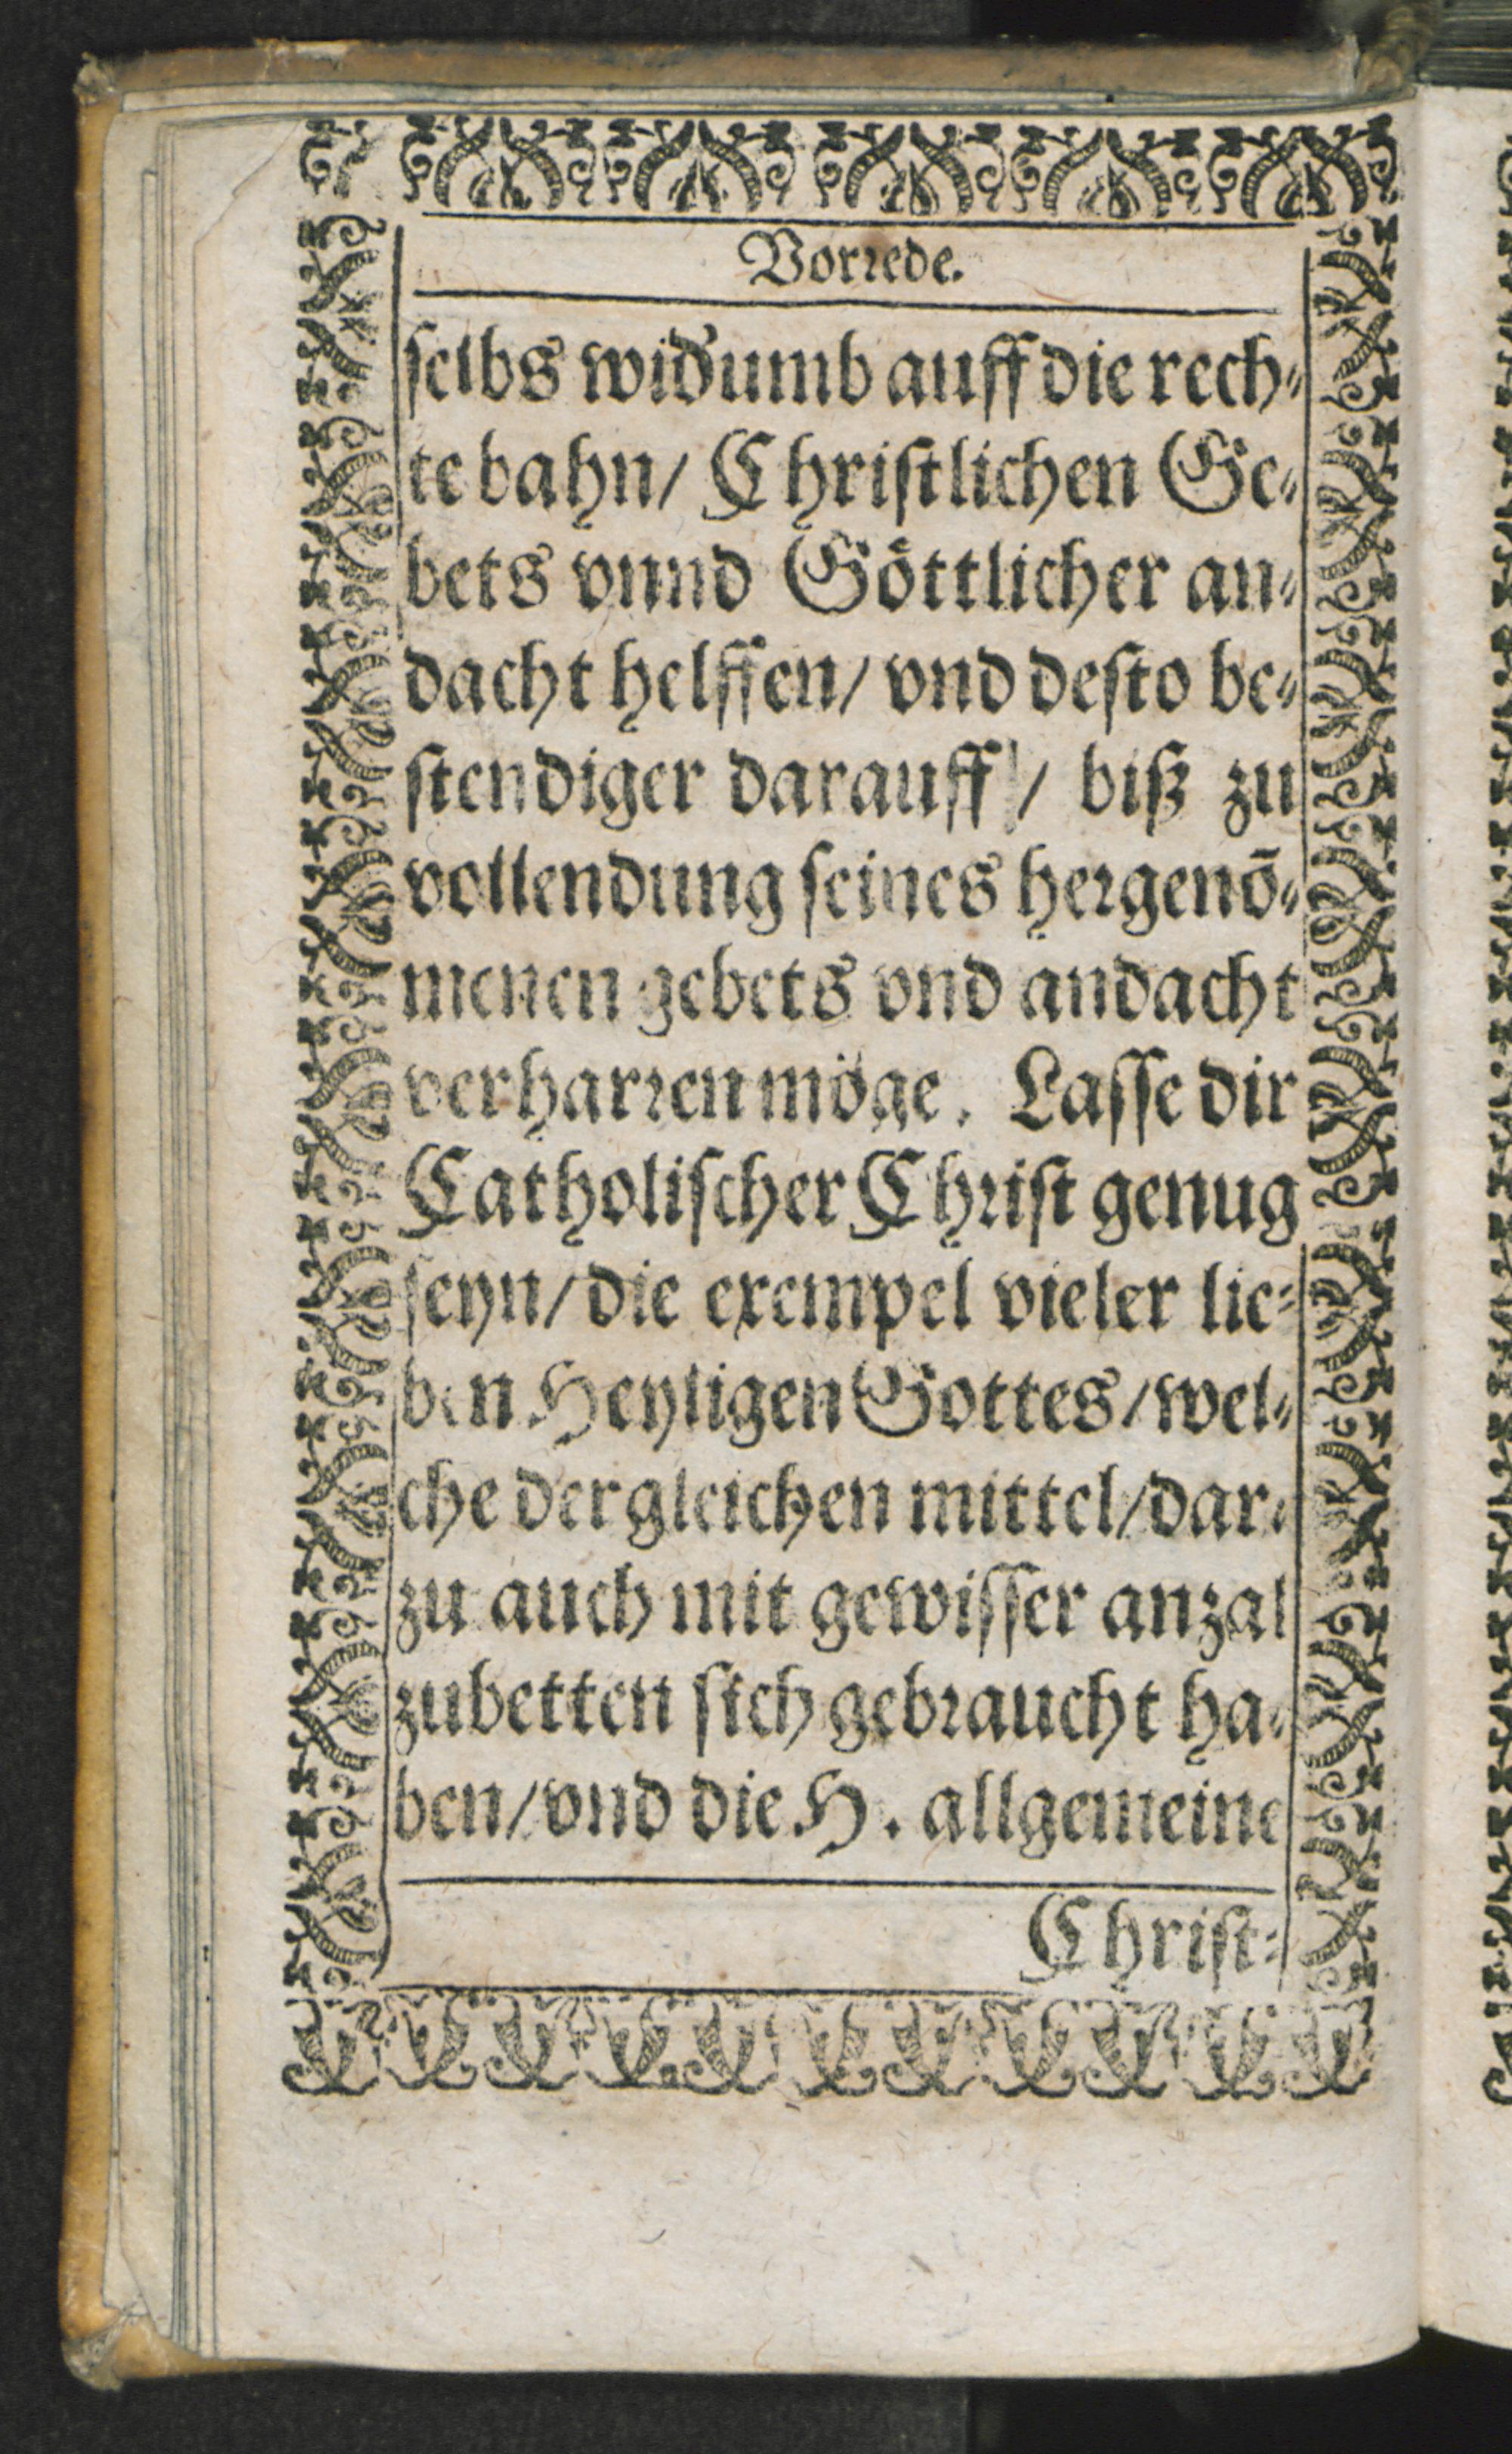 Vorrede.
ſelbs wid'umb auff die rech⸗
te bahn/ Chriſtlichen Ge⸗
bets vnnd Göttlicher an⸗
dacht helffen/ vnd deſto be⸗
ſtendiger darauff / biß zu
vollendung ſeines hergenō⸗
menen gebets vnd andacht
verharren möge. Laſſe dir
Catholiſcher Chriſt genug
ſeyn/ die exempel vieler lie⸗
ben Heyligen Gottes/ wel⸗
che dergleichen mittel/ dar⸗
zu auch mit gewiſſer anzal
zubetten ſich gebraucht ha⸗
ben/ vnd die H. allgemeine
Chriſt⸗